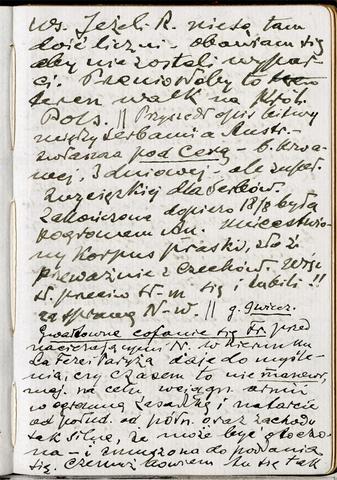 ws. Jeżeli R. nie są tam
dość liczni – obawiam się
aby nie zostali wyparci
ci. Przeniosłoby to
teren walk na Król.
Pols. || Przyszedł opis bitwy
między Serbami a Austr.
zwłaszcza pod Cerą – b. krwa-
wej, 3 dniowej – ale zupeł.
zwycięskiej dla Serbów.
Zakończona dopiero 18/8 była
pogromem
ny Korpus praski, zło ż.
przeważnie z Czechów.
S. przeciw N-m się i lubili !!
za sprawą N-w. ||
Gwałtowne cofanie się Fr. przed
nacierającymi N. w kierunku
La Fère i Paryża daje do myśle-
nia, czy czasem to nie manewr,
maj. na celu wciągn. armii
w ogromną zasadzkę i natarcie
od połud. od półn. oraz zachodu
tak silne, że może być otoczo-
na – i zmuszona do poddania
się. Czemuż bowiem